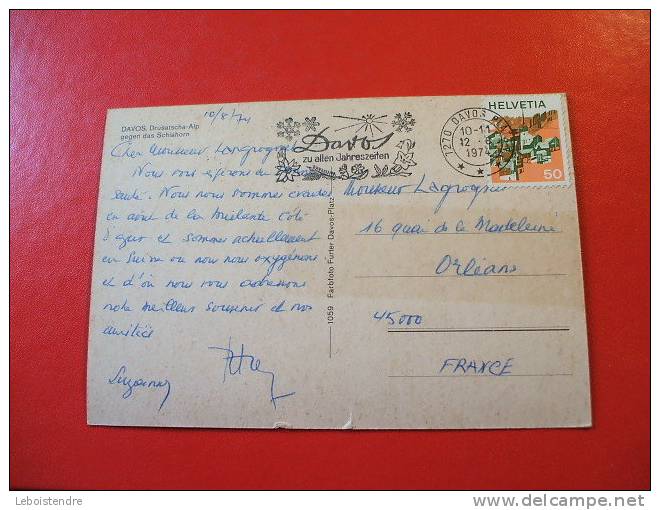 DAVOS, Drusatscha-Alp
gegen das Schiahorn
10/8/74
Davos
zu allen Jahreszeiten
7270 DAVOS PL
10-11
12
1974
HELVETIA
50
Cher Monsieur Lagrogne
Nous vous espérons en
santé. Nous nous sommes
en août de la brûlante Côte
d'Azur et sommes actuellement
en Suisse où nous nous oxygénons
et d'où nous vous adressons
notre meilleur souvenir et nos
amitiés
Suzanne
1059 Farbfoto Furter Davos-Platz
Monsieur Lagrogne
16 quai de la Madeleine
Orléans
45000
FRANCE
Leboistendre
DELCAMPE.NET